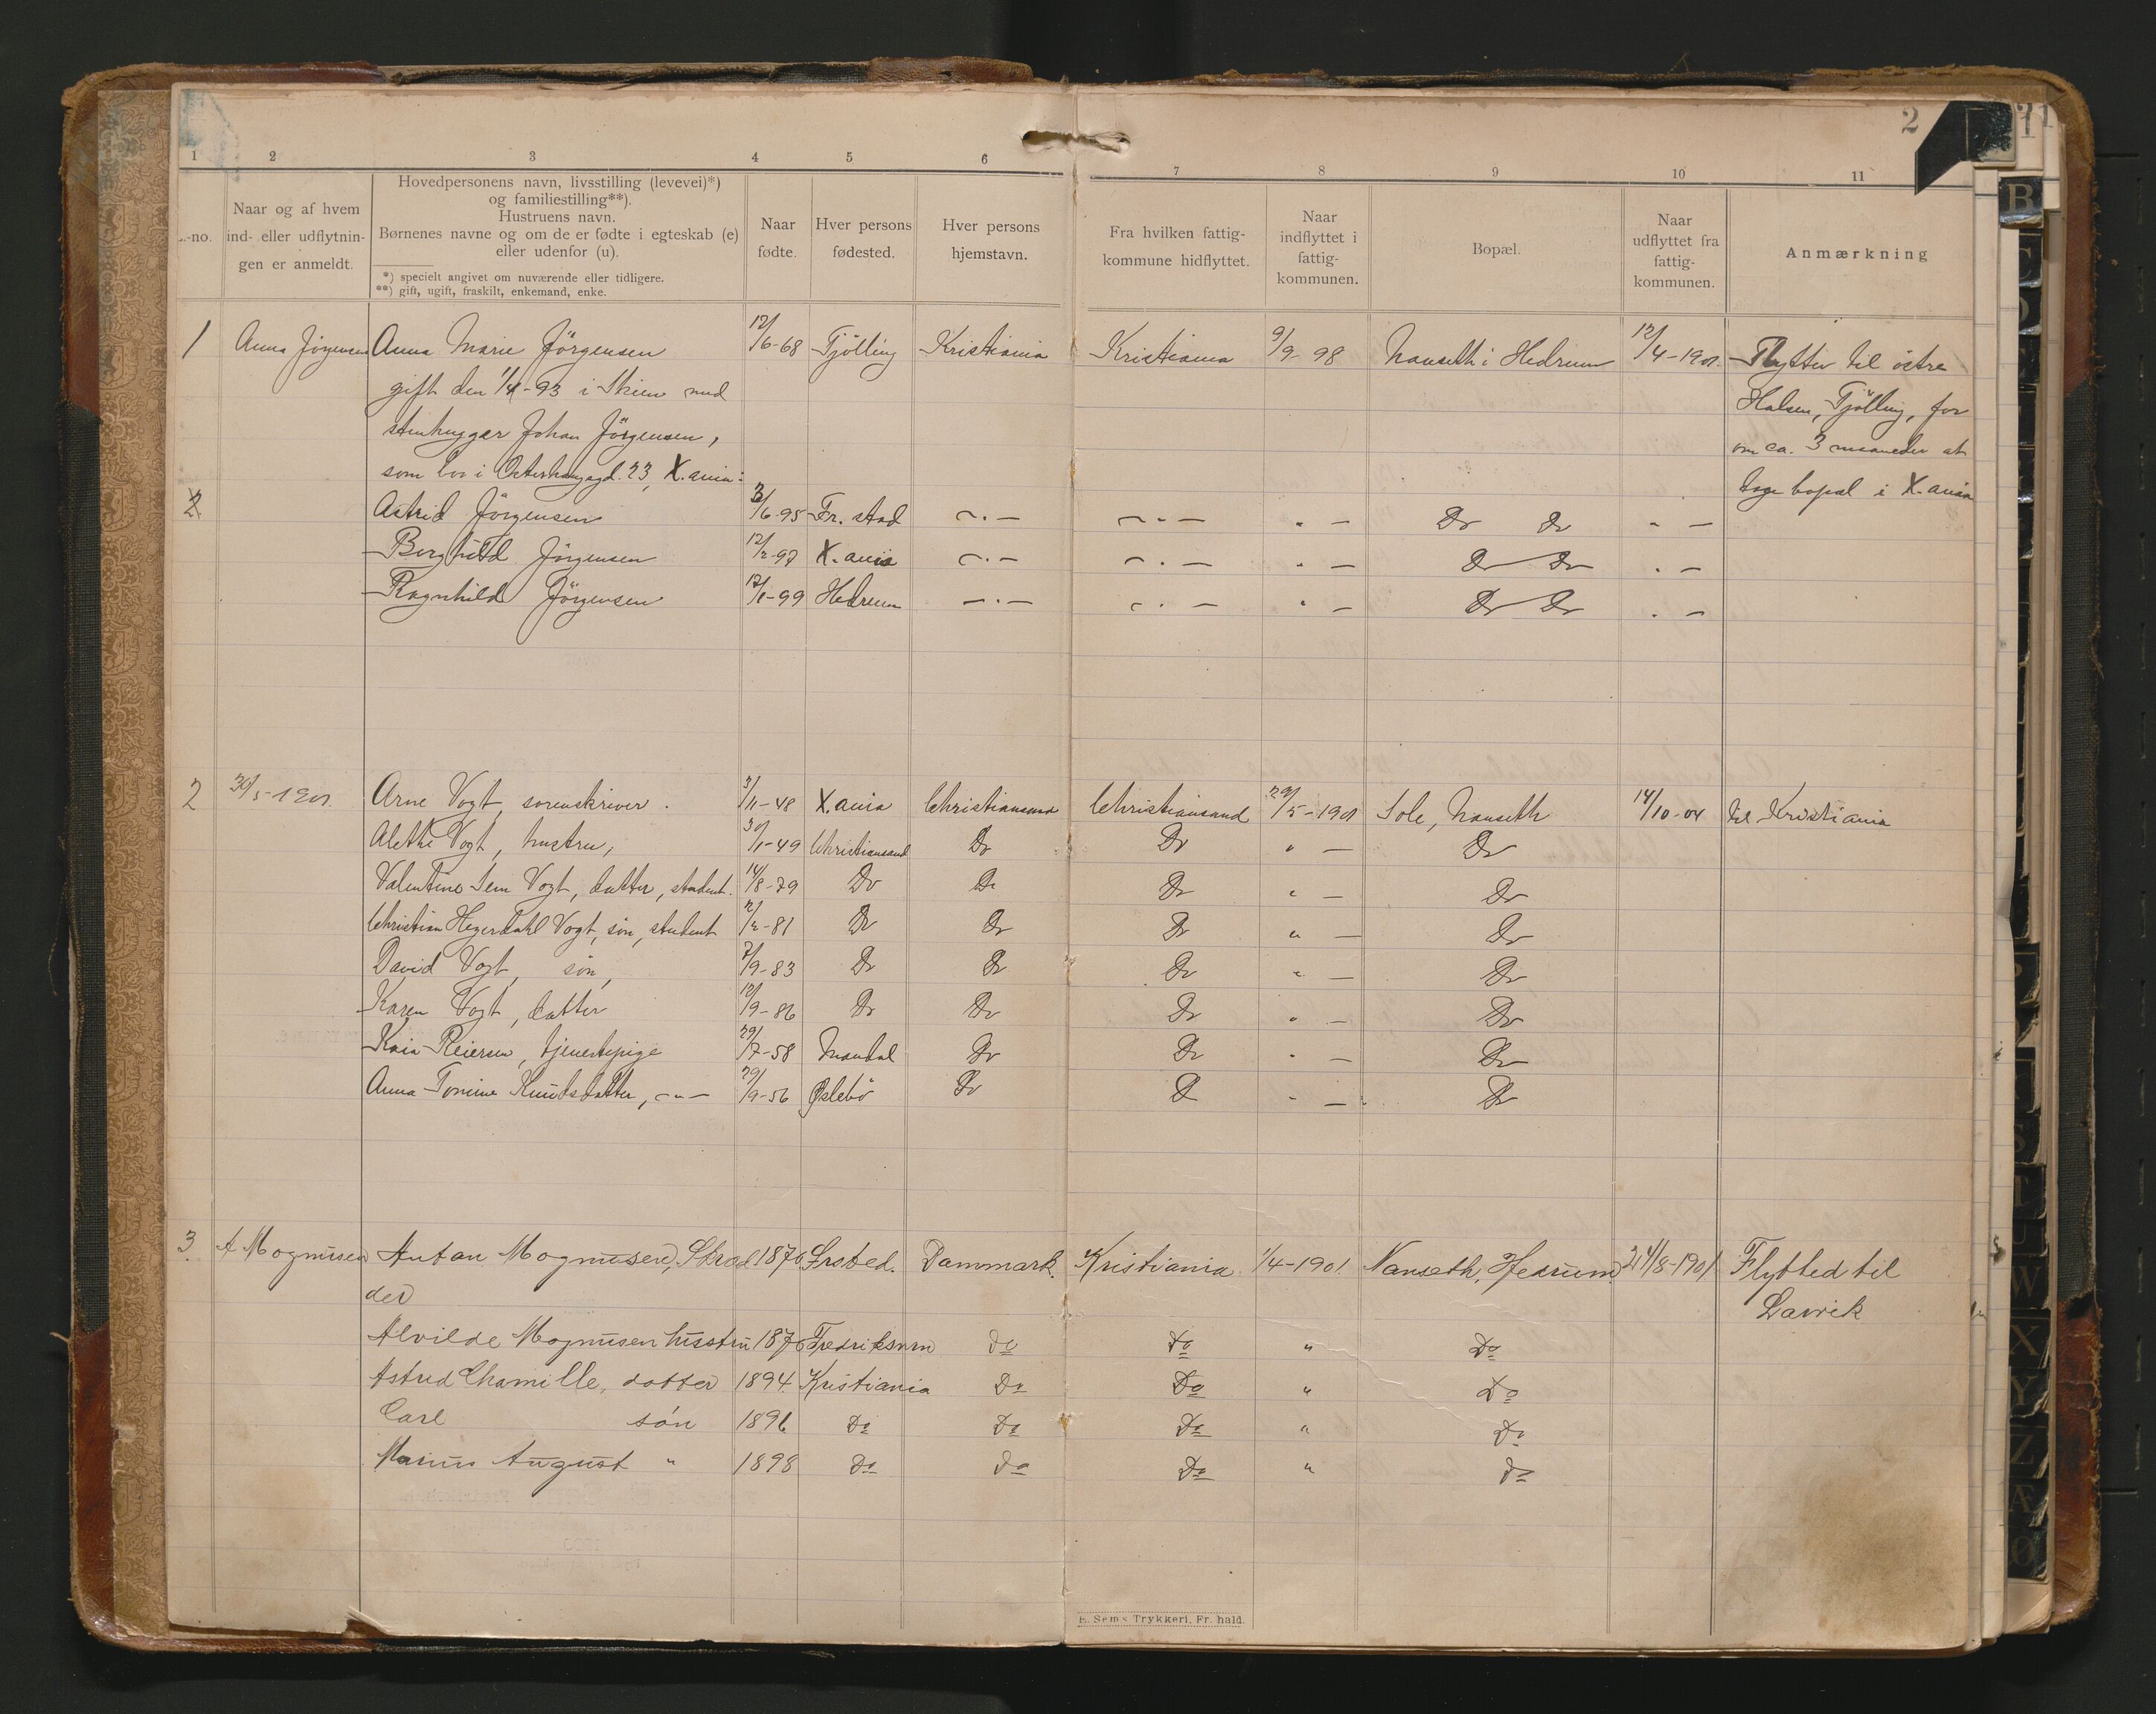 2
1 2 3 4 5 6 7 8 9 10 11
-no.
Naar og af hvem ind- eller udflytnin-gen er anmeldt.
Hovedpersonens navn, livsstilling (levevei)*)
og familiestilling**).
Hustruens navn.
Børnenes navne og om de er fødte i egteskab (e)
eller udenfor (u).
*) specielt angivet om nuværende eller tidligere.
**) gift, ugift, fraskilt, enkemand, enke.
Naar fødte.
Hver persons fødested.
Hver persons hjemstavn.
Fra hvilken fattig-kommune hidflyttet.
Naar indflyttet i fattig-kommunen.
Bopæl.
Naar udflyttet fra fattig-kommunen.
Anmærkning
1 Anna Jörgensen Anna Marie Jörgensen 12/6-68 Tjölling Kristiania Kristiania 9/9-98 Nanseth i Hedrum 12/4-1901. Flytter til östre
gift den 1/4-93 i Skien med Halsen, Tjölling, for
stenhugger Johan Jörgensen, om ca. 3 maaneder at
som bor i 23, X.ania: tage bopæl i X.ania
2 Astrid Jörgensen 3/6-95 Fr. stad -.- -.- " - Do Do " -
Borghild Jörgensen 12/2-97 X.ania -.- -.- " - Do Do " -
Ragnhild Jörgensen 17/1-99 Hedrum -.- -.- " - Do Do " -
2 30/5-1901. Arne Vogt, sorenskriver. 3/11-48 X.ania Christiansand Christiansand 29/5-1901 Sole, Nanseth 14/10-04 til Kristiania
Alethe Vogt, hustru, 30/1-49 Christiansand Do Do " - Do
Valentine Sem Vogt, datter, student. 14/8-79 Do Do Do " - Do
Christian Hegerdahl Vogt, sön, student 2/2-81 Do Do Do " - Do
David Vogt, sön, 7/9-83 Do Do Do " - Do
Karen Vogt, datter 12/9-86 Do Do Do " - Do
Kaia Reiersen, tjenestepige 29/7-58 Mandal Do Do " - Do
Anna Tomine Knudsdatter, -"- 29/9-56 Øslebö Do Do " - Do
3. A Mognusen Antan Mognusen, Skræd 1870 Ørsted. Dammark. Kristiania 1/4-1901. Nanseth, Hedrum 24/8-1901 Flytted til
der Larvik
Alvilde Mognusen hustru 1876 Fredriksvrn do Do " Do
Astrid Chamille, datter 1894 Kristiania Do Do " Do
Carl sön 1896 Do Do Do " Do
Marius August " 1898 Do do Do " do
E. Sems Trykkeri, Fr. hald.
B
C
S
T
U
W
X
Y
Z
Æ
Ø